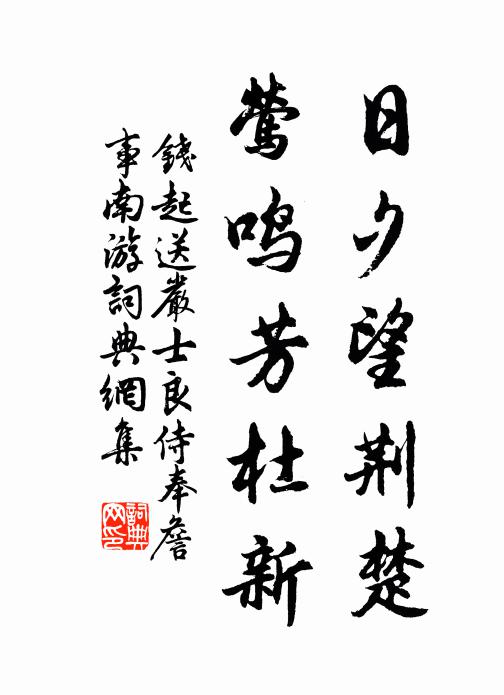 日夕望荆楚
莺鸣芳杜新
錢起送嚴士良侍奉詹
事南游詞典網集
詞典
网印